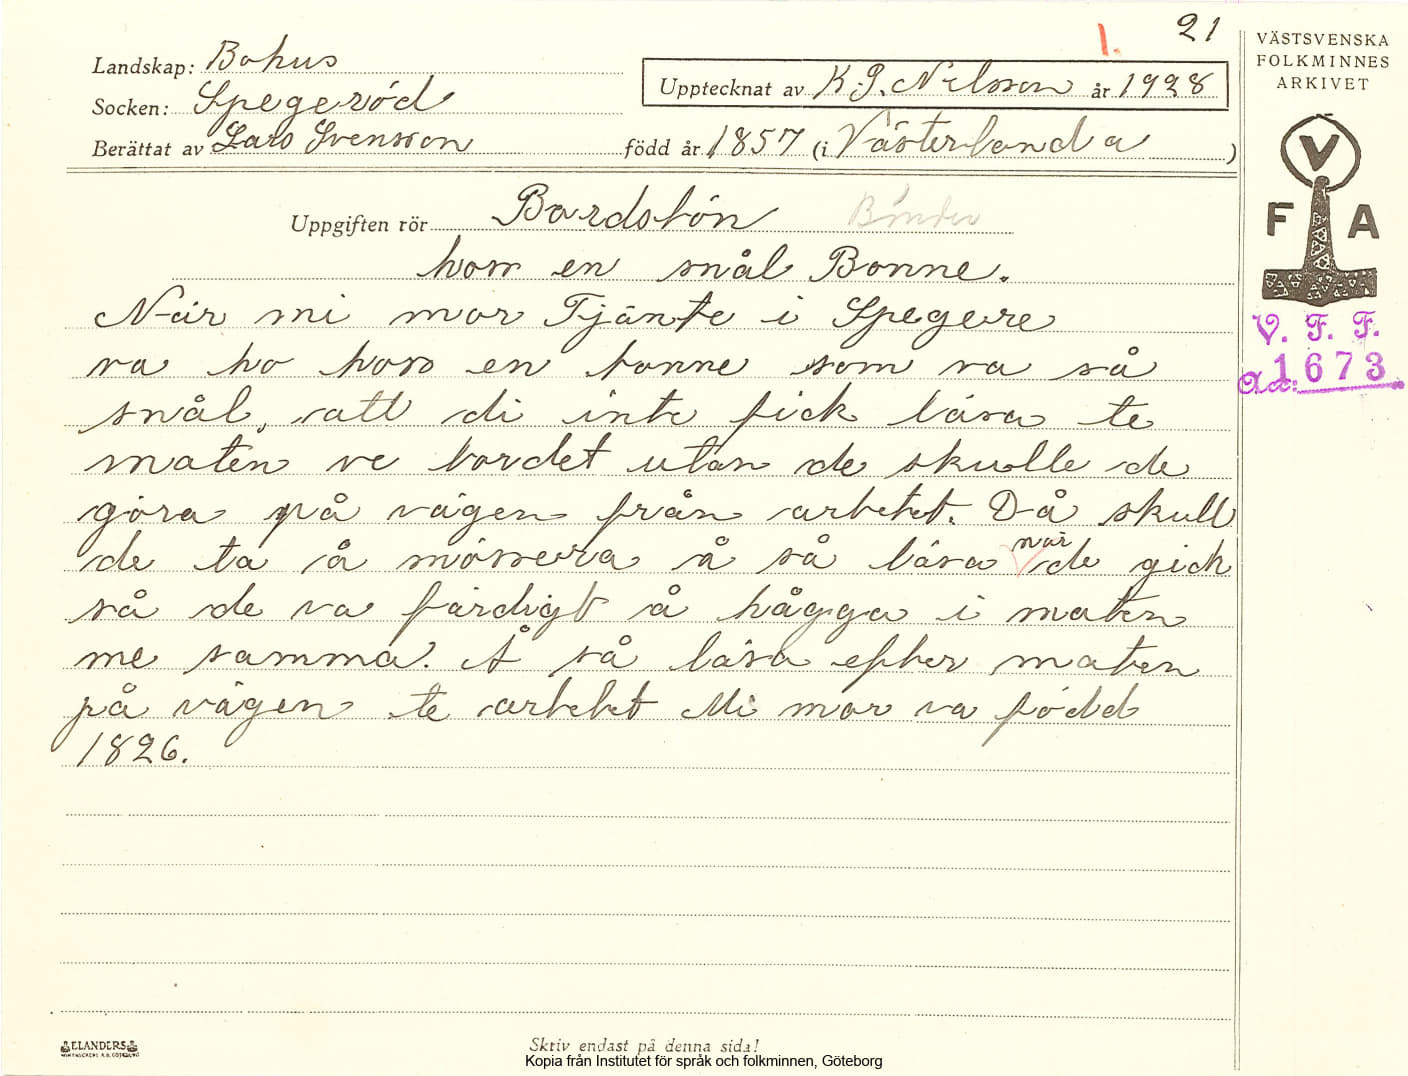 21
1.
Landskap: Bohus
Socken: Spegeröd
Berättat av Lars Svensson född år 1857 (i Västerlanda)
Upptecknat av K.G. Nilsson år 1928
VÄSTSVENSKA
FOLKMINNES
ARKIVET
V
F A
V. F. F.
1673
Uppgiften rör Bordsbön Bönder
hoss en snål Bonne.
När mi mor Tjänte i Spegere
va ho hoss en bonne som va så
snål, att di inte fick läsa te
maten ve bordet utan de skulle de
göra på vägen från arbetet. Då skull
de ta å mössera å så läsa när de gick
så de va färdigt å hågga i maten
me samma. Å så läsa efter maten
på vägen te arbetet Mi mor va född
1826.
ELANDERS
Skriv endast på denna sida!
Kopia från Institutet för språk och folkminnen, Göteborg